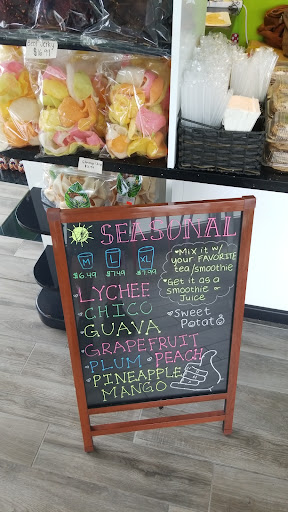 Beef Jerky
$16.99
SEASUNAL
M L XL
$6.49 $7.49 $7.99
LYCHEE
CHICO
GUAVA
GRAPEFRUIT
PLUM PEACH
PINEAPPLE
MANGO
Mix it w/
your FAVORITE
tea/smoothie
Get it as a
smoothie or
Juice
Sweet
Potato